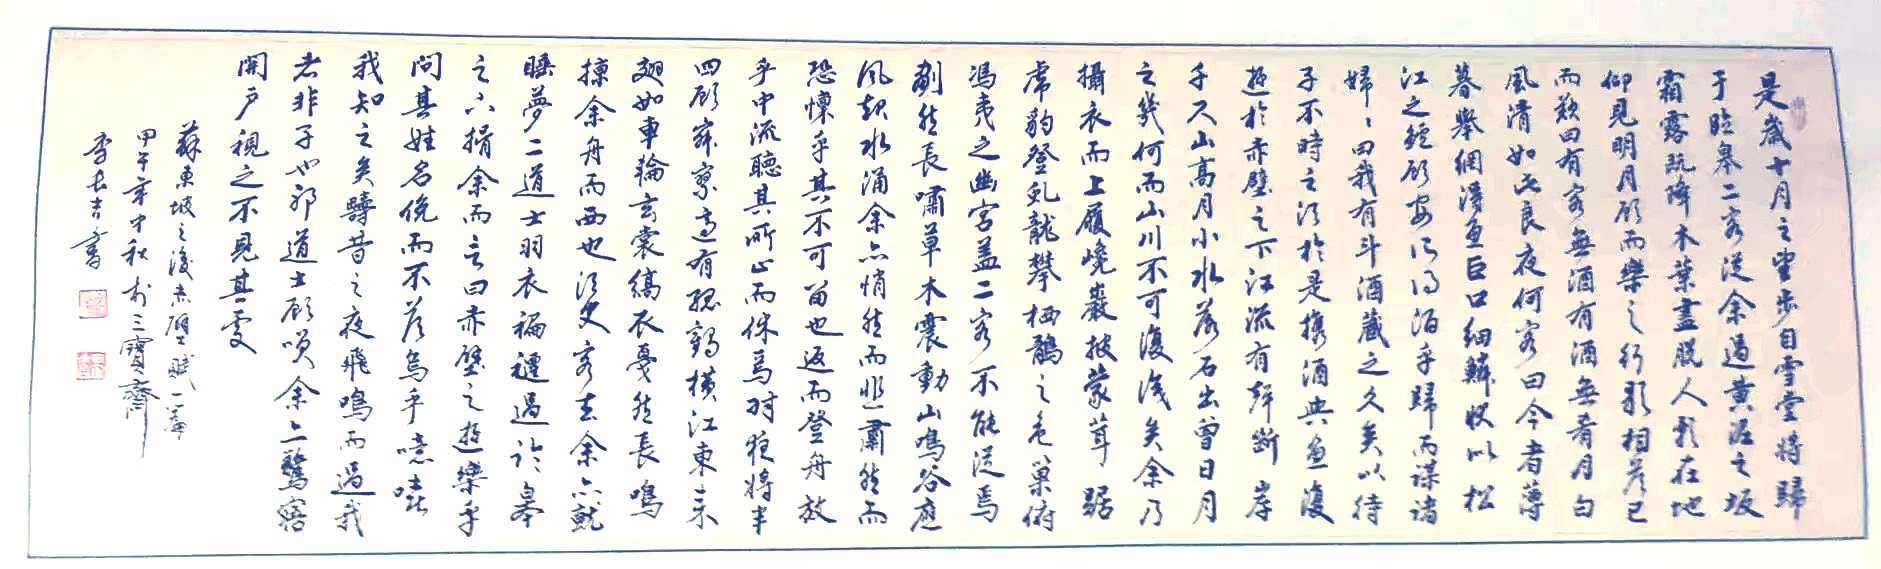 是歲十月之望步自雪堂將歸
于臨皋二客從余過黃泥之坂
霜露既降木葉盡脫人影在地
仰見明月顧而樂之行歌相答已
而歎曰有客無酒有酒無肴月白
風清如此良夜何客曰今者薄
暮舉網得魚巨口細鱗狀似松
江之鱸顧安所得酒乎歸而謀諸
婦婦曰我有斗酒藏之久矣以待
子不時之須於是攜酒與魚復
遊於赤壁之下江流有聲斷岸
千尺山高月小水落石出曾日月
之幾何而山川不可復識矣余乃
攝衣而上履巉巖披蒙茸踞
虎豹登虬龍攀栖鶻之危巢俯
馮夷之幽宮蓋二客不能從焉
劃然長嘯草木震動山鳴谷應
風起水涌余亦悄然而悲肅然而
恐懍乎其不可留也返而登舟放
乎中流聽其所止而休焉時夜將半
四顧寂寥適有孤鶴橫江東來
翅如車輪玄裳縞衣戛然長鳴
掠余舟而西也須臾客去余亦就
睡夢二道士羽衣蹁躚過臨皋
之下揖余而言曰赤壁之遊樂乎
問其姓名俛而不答烏乎噫嘻
我知之矣疇昔之夜飛鳴而過我
者非子也邪道士顧笑余亦驚寤
開戶視之不見其處
蘇東坡之後赤壁賦一篇
甲午年中秋於三寶齋
李長吉書